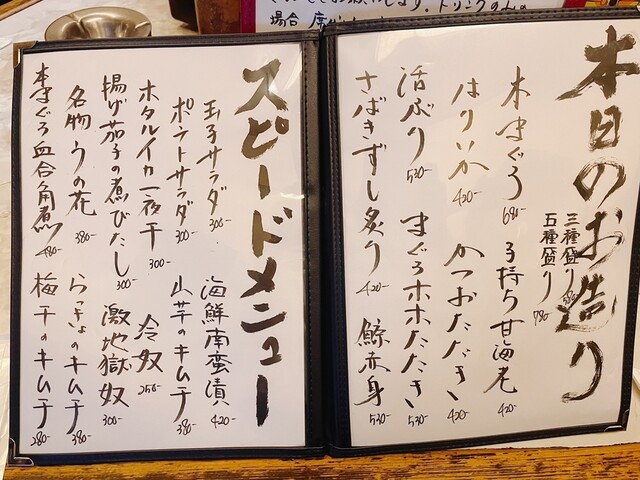 本日のお造り
三種盛り
五種盛り 780-
本まぐろ 680-
子持ち甘海老 420-
はりいか 420-
かつおたたき 420-
活ぶり 530-
まぐろホホたたき 530-
さばきずし炙り 420-
鯨赤身 530-
スピードメニュー
玉子サラダ 300-
海鮮南蛮漬 420-
ポテトサラダ 300-
山芋のキムチ 380-
ホタルイカ一夜干 300-
冷奴 250-
揚げ茄子の煮びたし 300-
激地獄奴 300-
名物うの花 380-
らっきょのキムチ 380-
本まぐろ血合角煮 480-
梅干のキムチ 280-